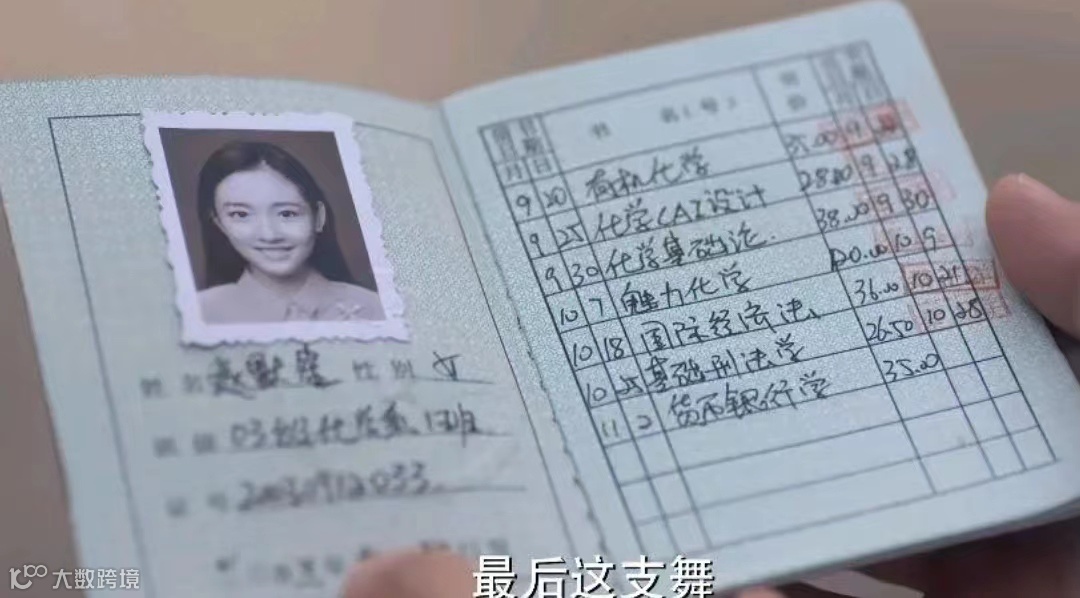 姓名 赵默笙 性别 女
班级 03级化学系1班
证号 20031912033
月 日 书 名（号） 价
9 20 有机化学 35.00 9
9 25 化学CAI设计 28.80 9 28
9 30 化学基础论 38.00 9 30
10 7 魅力化学 20.00 10 9
10 18 国际经济法 36.00 10 21
10 25 基础刑法学 26.50 10 28
11 2 货币银行学 35.00
最后这支舞
大数跨境